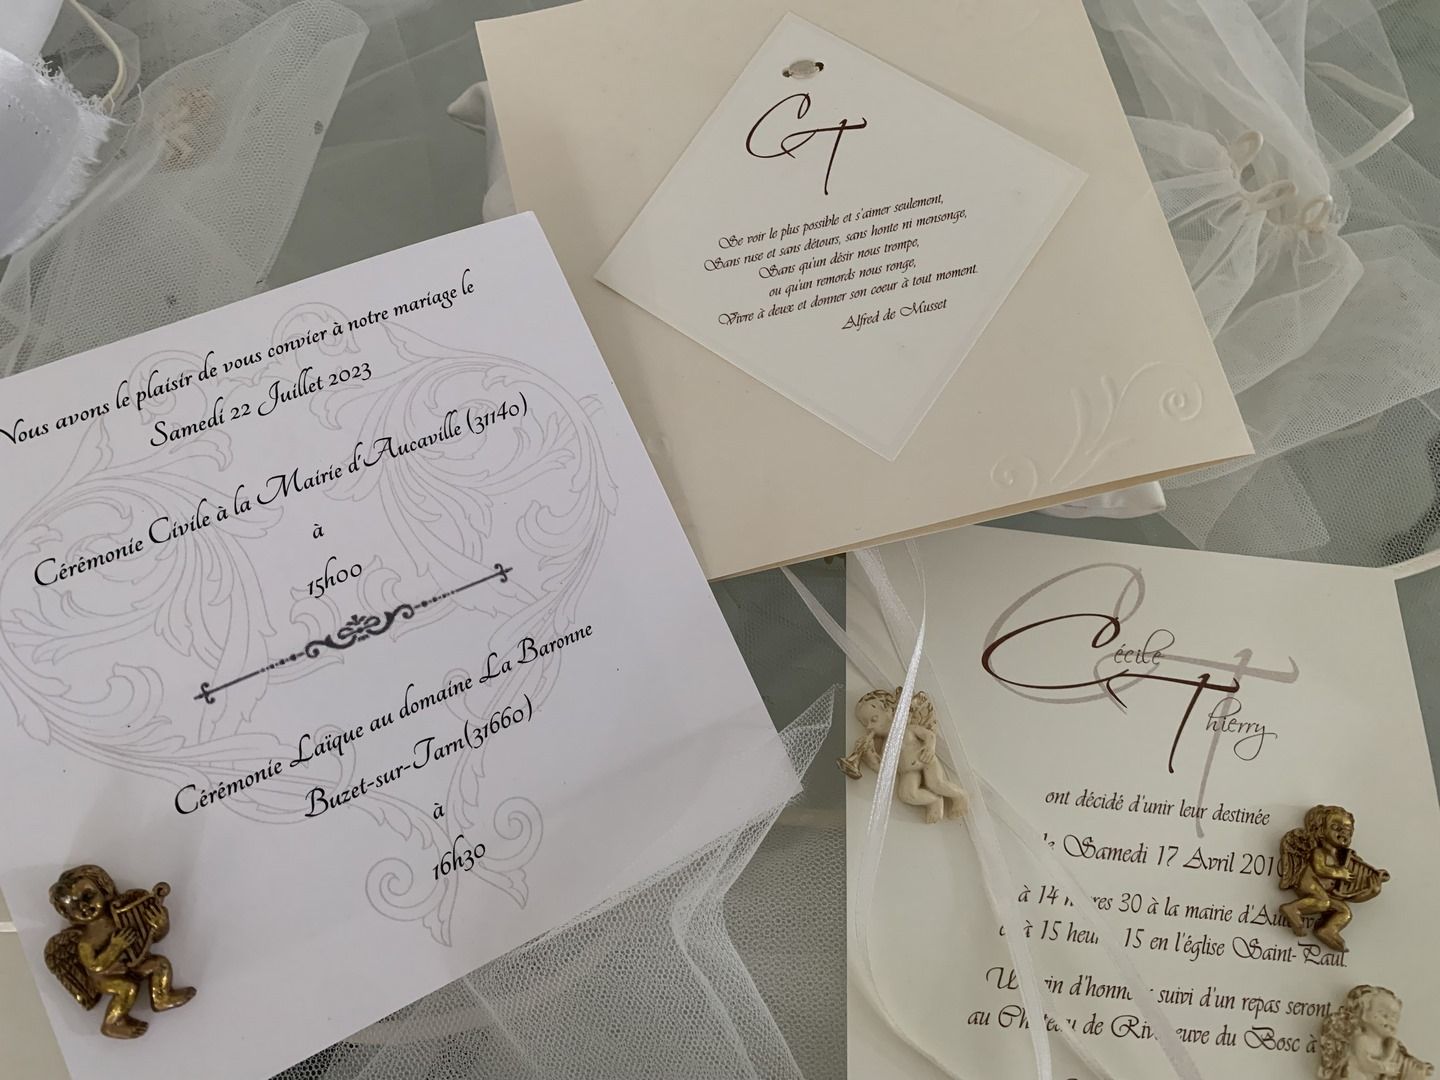 Vous avons le plaisir de vous convier à notre mariage le
Samedi 22 Juillet 2023
Cérémonie Civile à la Mairie d'Aucaville (31140)
à
15h00
Cérémonie Laïque au domaine La Baronne
Buzet-sur-Tarn(31660)
à
16h30
CT
Se voir le plus possible et s'aimer seulement,
Sans ruse et sans détours, sans honte ni mensonge,
Sans qu'un désir nous trompe,
ou qu'un remords nous ronge,
Vivre à deux et donner son coeur à tout moment.
Alfred de Musset
Cécile
Thierry
ont décidé d'unir leur destinée
Samedi 17 Avril 201
à 14 res 30 à la mairie d'Au
à 15 heu 15 en l'église Saint-Paul.
d'honne suivi d'un repas seront
au Ch de Riv euve du Bosc à